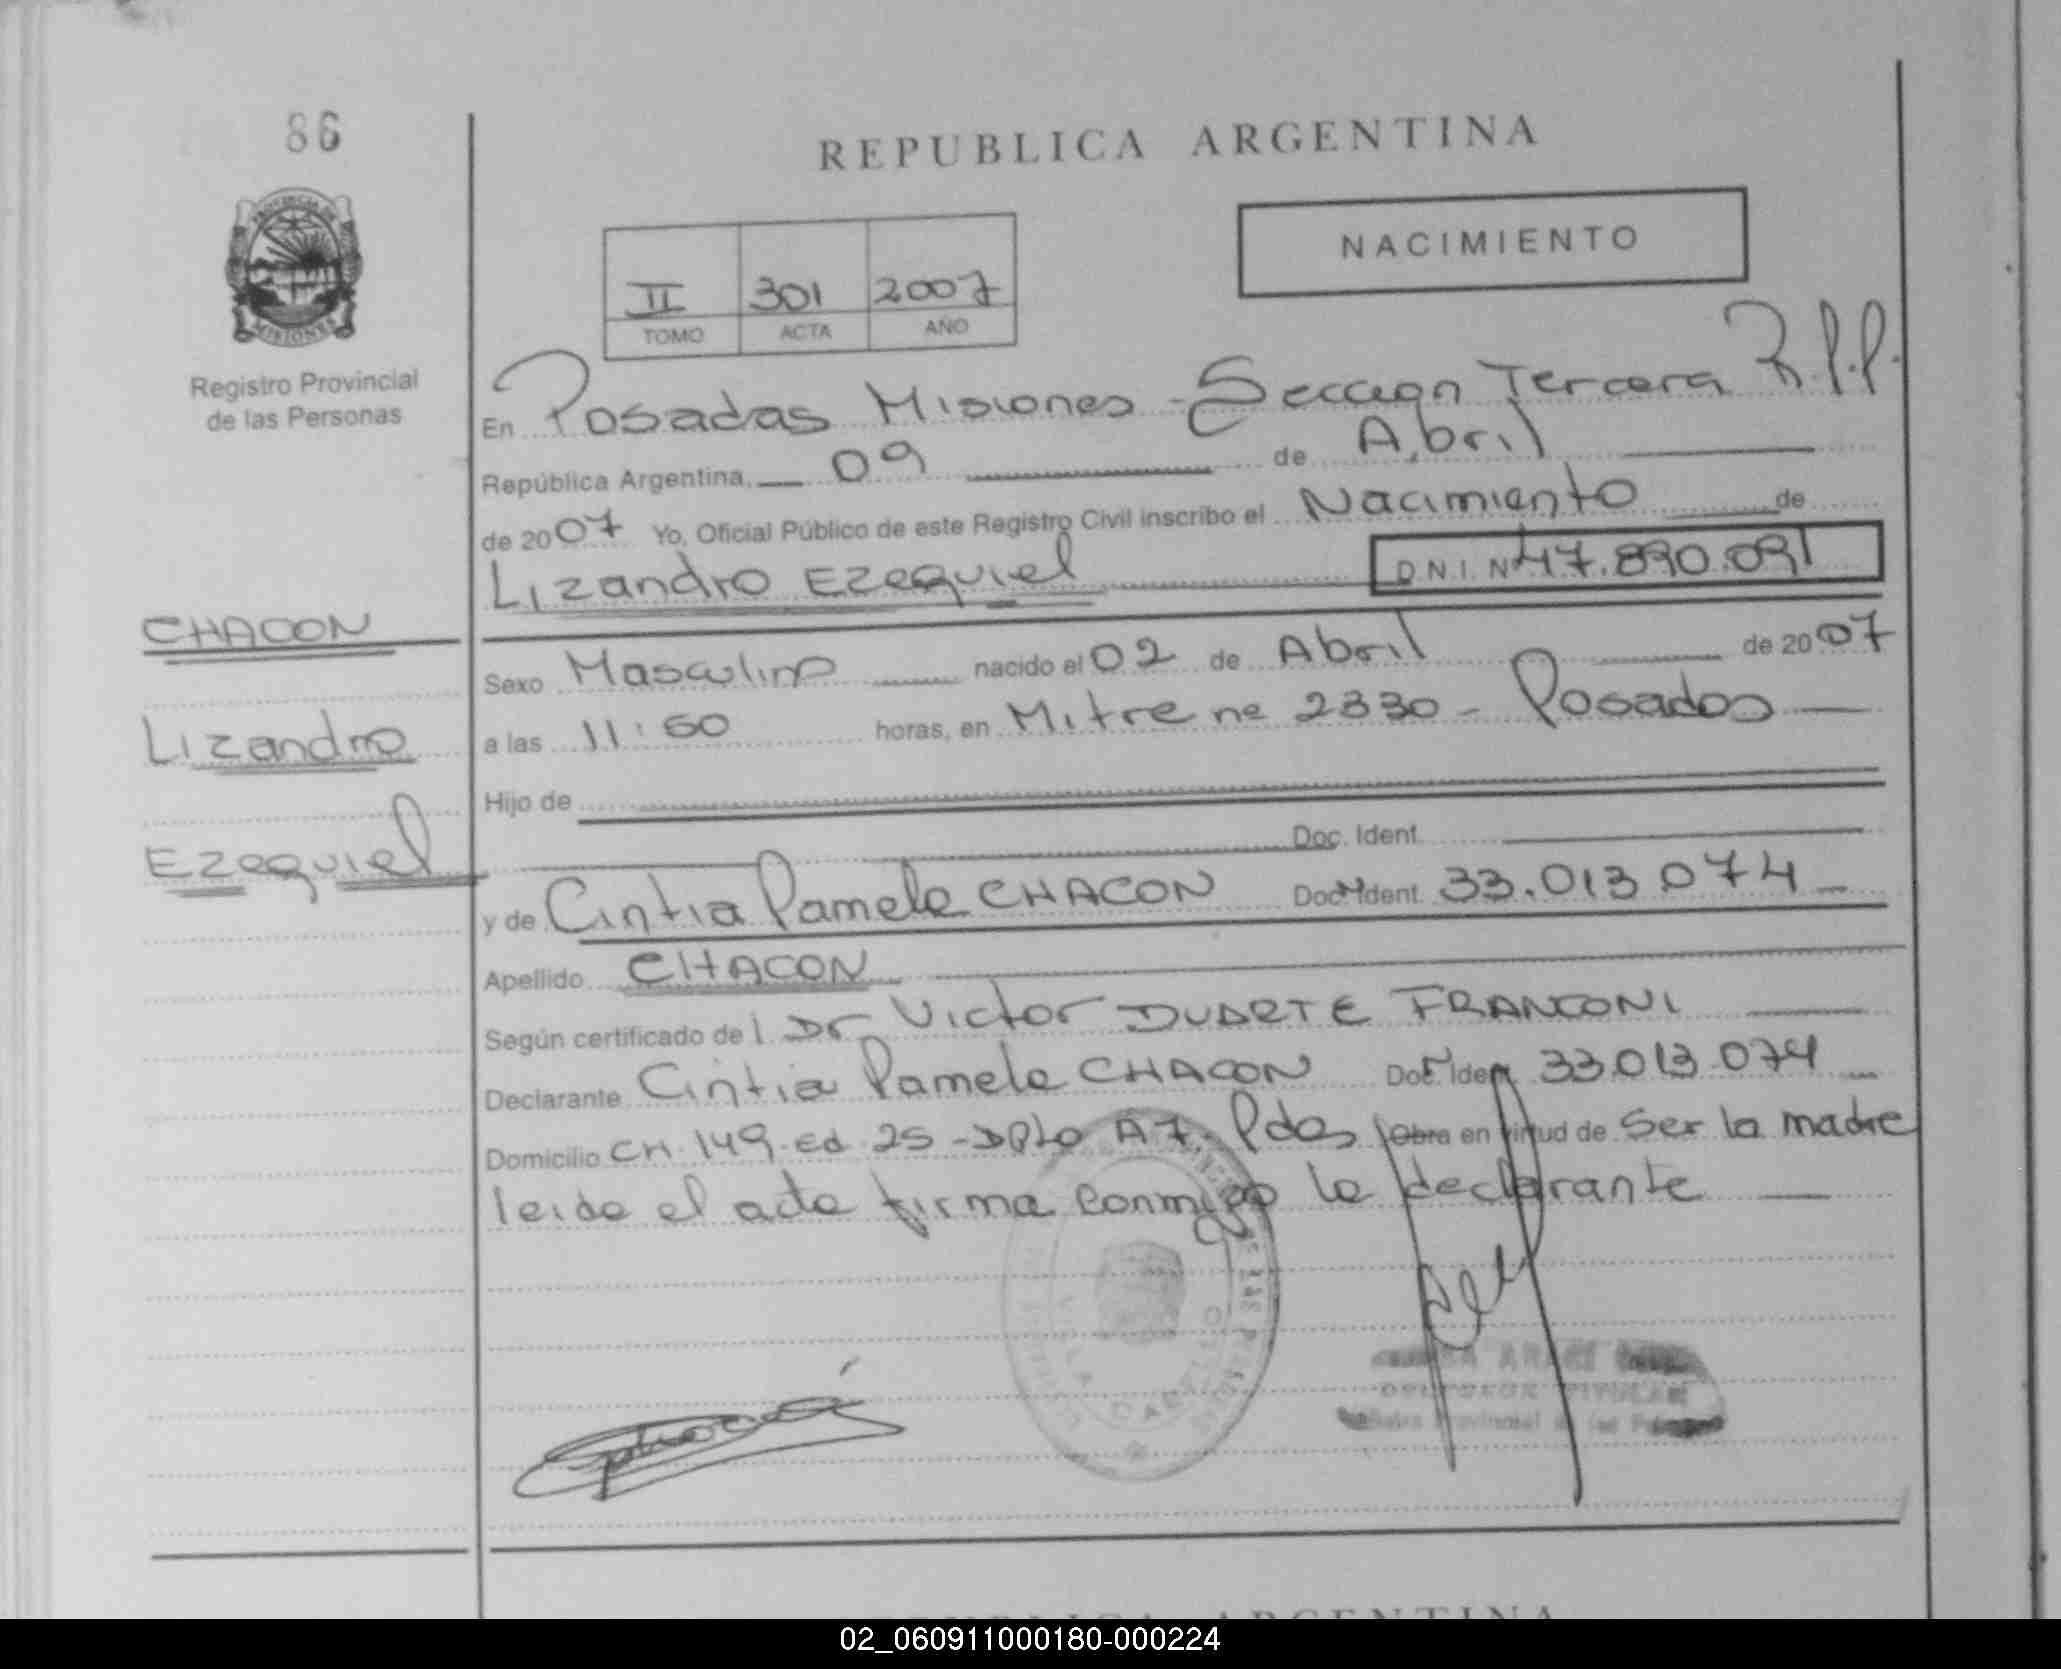 86
REPUBLICA ARGENTINA
PROVINCIA DE
MISIONES
Registro Provincial
de las Personas
NACIMIENTO
II 301 2007
TOMO ACTA AÑO
En Posadas Misiones - Seccion Tercera R.P.P.
República Argentina, 09 de Abril
de 2007 Yo, Oficial Público de este Registro Civil inscribo el Nacimiento de
Lizandro Ezequiel D.N.I. Nº 47.890.091
CHACON
Lizandro
Ezequiel
Sexo Masculino nacido el 02 de Abril de 2007
a las 11:50 horas, en Mitre nº 2330 - Posadas
Hijo de
Doc. Ident.
y de Cintia Pamela CHACON Doc. Ident. 33.013.074
Apellido CHACON
Según certificado del Dr Victor DUARTE FRANCONI
Declarante Cintia Pamela CHACON Doc. Iden 33.013.074
Domicilio CH. 149 Ed 25 - Dpto A7. Pdas Obra en virtud de Ser la madre
leida el acta firma conmigo la declarante
TITULAR
REPUBLICA ARGENTINA
02_060911000180-000224